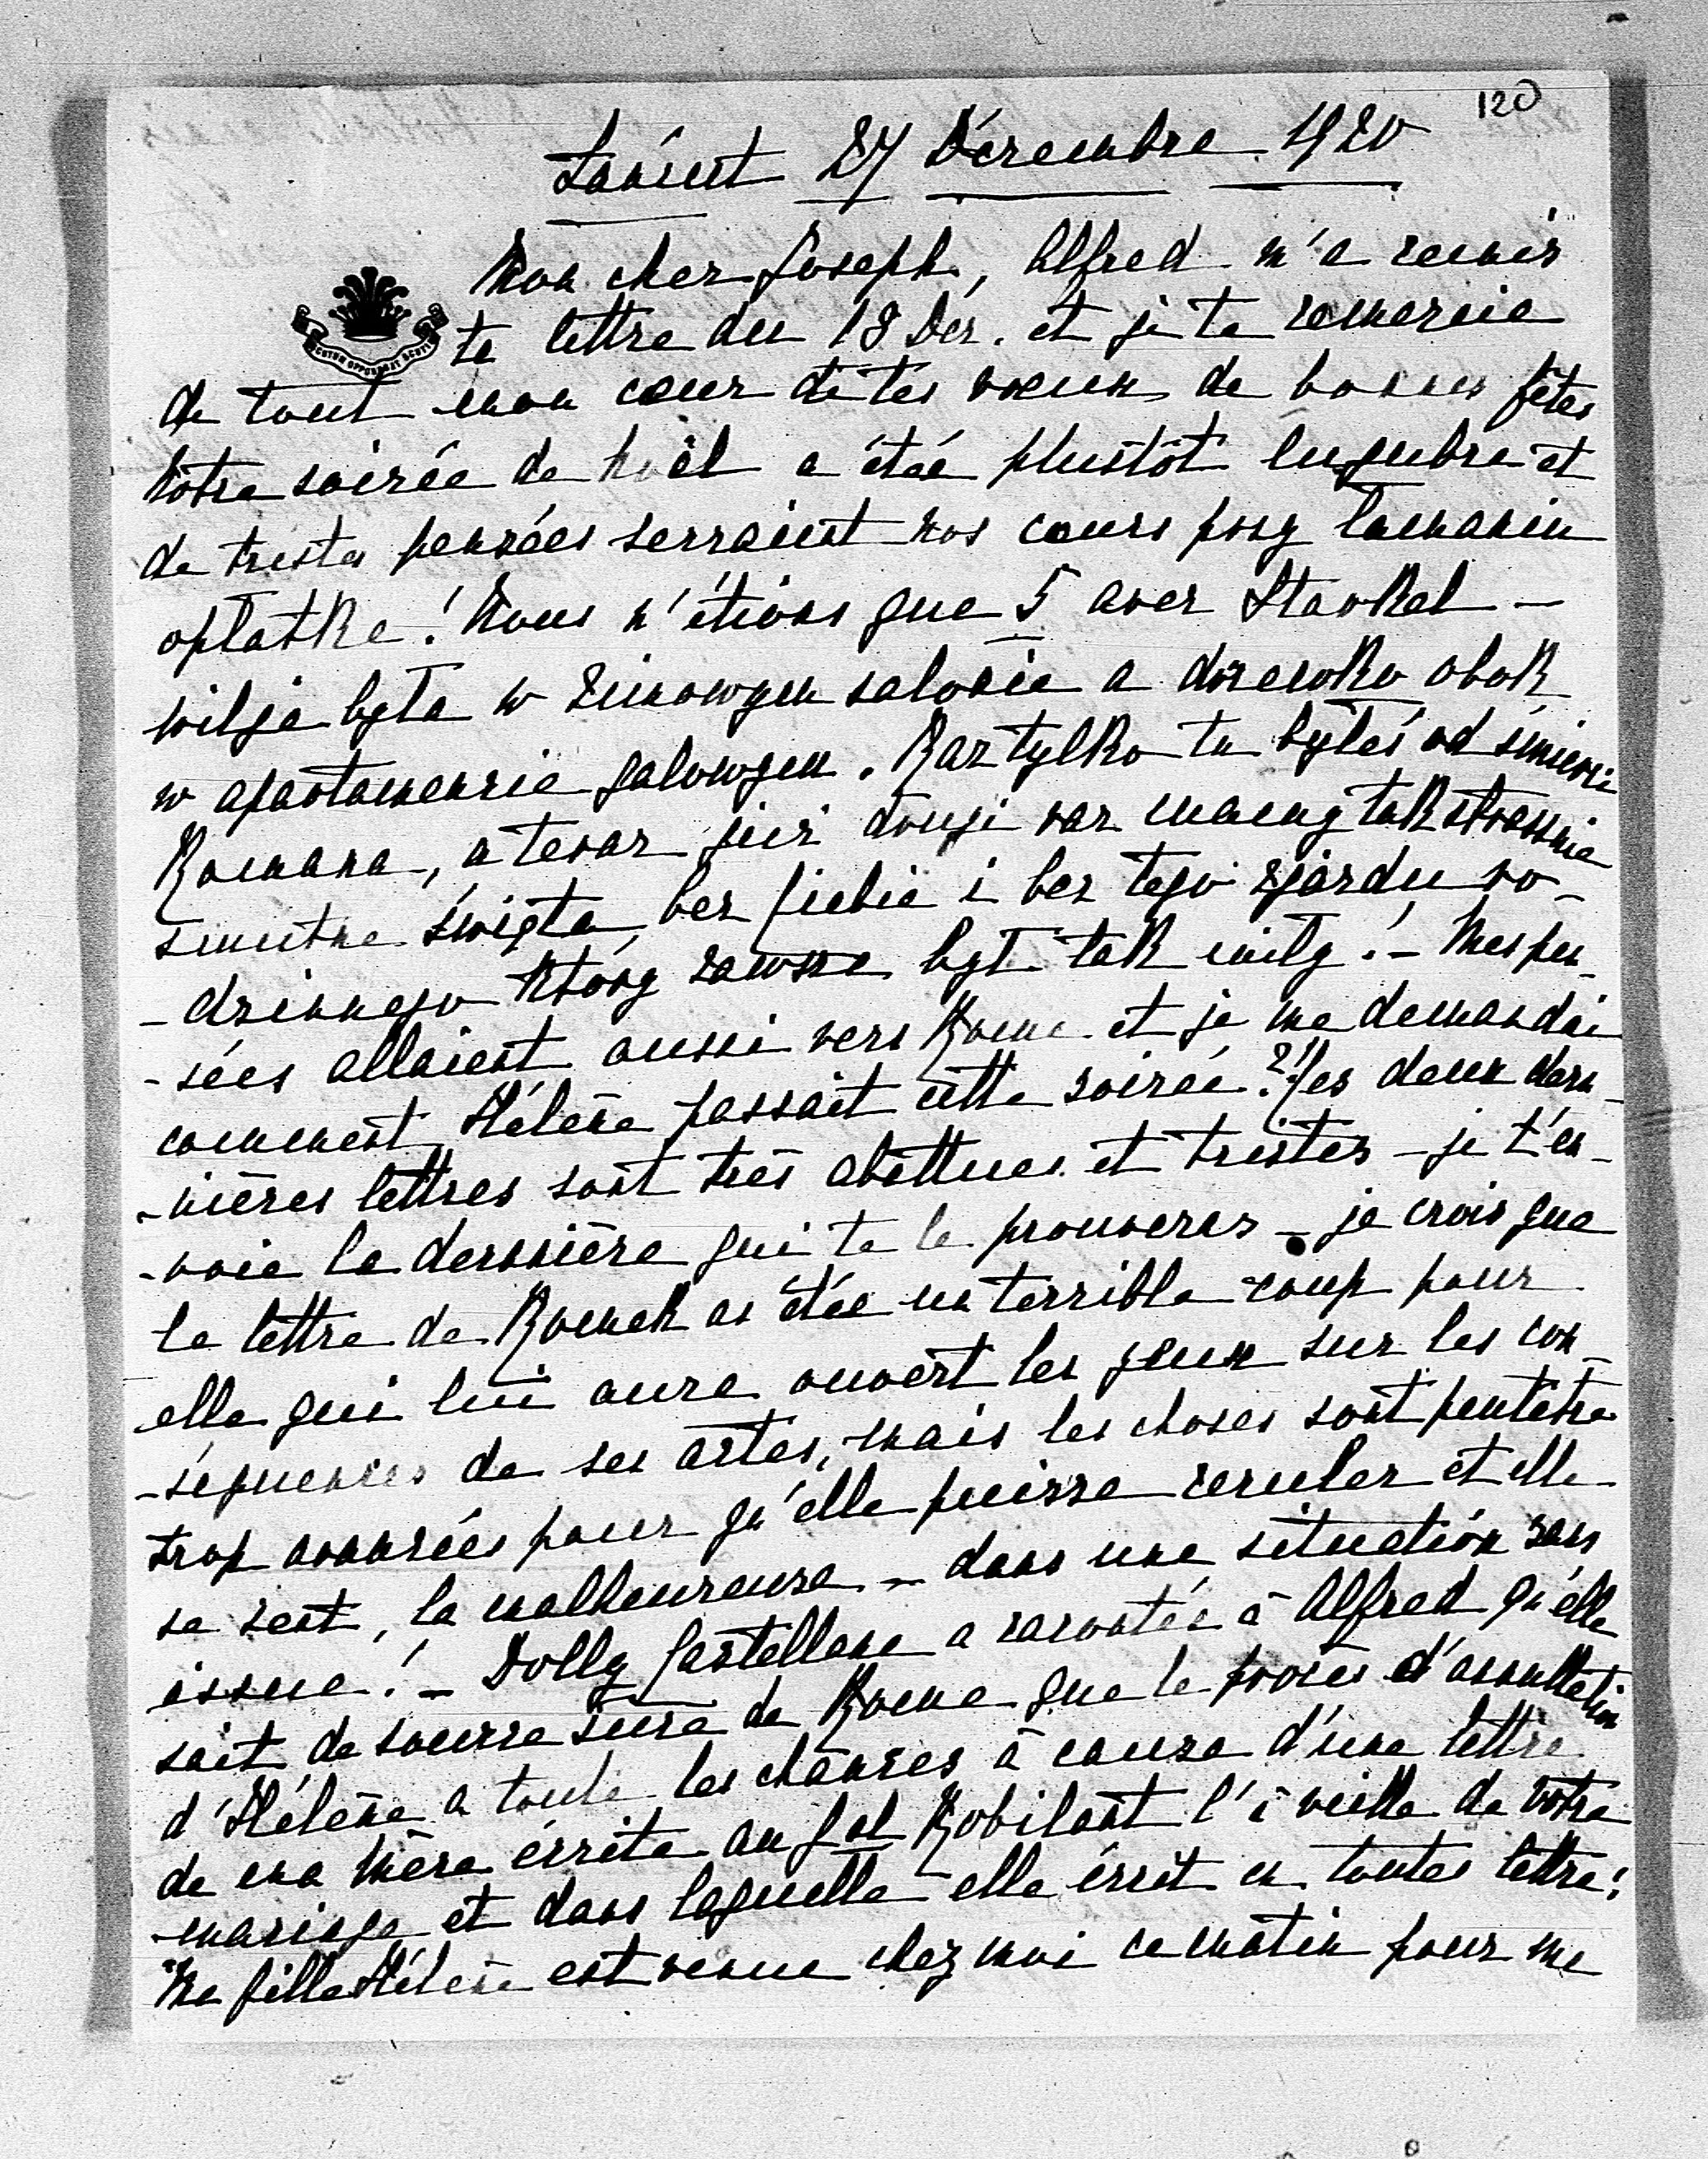 120
Łańcut 27 Décembre 1920
Mon cher Joseph, Alfred m'a remis
ta lettre du 18 Déc. et je te remercie
de tout mon cœur de tes vœux de bonnes fêtes
Nôtre soirée de Noël a étée plustôt lugubre et
de tristes pensées serraient nos cœurs przy łamaniu
opłatka! Nous n'étions que 5 avec
wilja była w zimowym salonie a drzewko obok
w apartamencie galowym. Raz tylko tu byłeś od śmierci
Romana, a teraz już drugi raz mamy tak strasznie
smutne święta, bez Ciebie i bez tego zjazdu ro-
-dzinnego który zawsze był tak miły! - Mes pen-
-sées allaient aussi vers Rome et je me demandai
comment Hélène passait cette soirée?! Ses deux der-
-nières lettres sont très abattues et tristes - je t'en-
-voie la dernière qui te le prouveras - je crois que
la lettre de Romek as étée un terrible coup pour
elle qui lui aura ouvert les yeux sur les con-
-séquences de ses actes, mais les choses sont peutêtre
trop avancées pour qu'elle puisse reculer et elle
se sent, la malheureuse - dans une situation sans
issue! - Dolly Castellane a racontée à Alfred qu'elle
sait de source sûre de Rome que le procès d'annullation
d'Hélène a toute les chances à cause d'une lettre
de ma Mère écrite au Robilant l'à veille de votre
mariage et dans laquelle elle écrit en toutes lettre:
"Ma fille Hélène est venue chez moi ce matin pour me